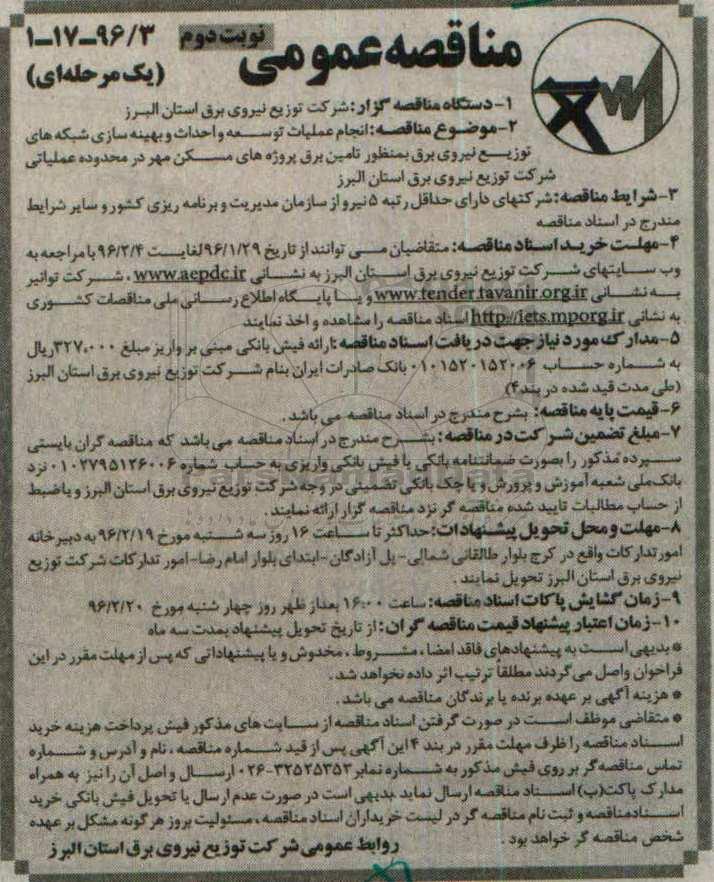 مناقصه عمومی
نوبت دوم
۹۶/۳-۱۷-۱
(یک مرحله‌ای)
۱-دستگاه مناقصه گزار: شرکت توزیع نیروی برق استان البرز
۲-موضوع مناقصه: انجام عملیات توسعه و احداث و بهینه سازی شبکه های
توزیع نیروی برق بمنظور تامین برق پروژه های مسکن مهر در محدوده عملیاتی
شرکت توزیع نیروی برق استان البرز
۳-شرایط مناقصه: شرکتهای دارای حداقل رتبه ۵ نیرو از سازمان مدیریت و برنامه ریزی کشور و سایر شرایط
مندرج در اسناد مناقصه
۴-مهلت خرید اسناد مناقصه: متقاضیان می توانند از تاریخ ۹۶/۱/۲۹ لغایت ۹۶/۲/۴ با مراجعه به
وب سایتهای شرکت توزیع نیروی برق استان البرز به نشانی www.aepdc.ir ، شرکت توانیر
به نشانی www.tender.tavanir.org.ir و یا پایگاه اطلاع رسانی ملی مناقصات کشوری
به نشانی http://iets.mporg.ir اسناد مناقصه را مشاهده و اخذ نمایند
۵-مدارک مورد نیاز جهت دریافت اسناد مناقصه: ارائه فیش بانکی مبنی بر واریز مبلغ ۳۲۷,۰۰۰ ریال
به شماره حساب ۰۱۰۱۵۲۰۱۵۲۰۰۶ بانک صادرات ایران بنام شرکت توزیع نیروی برق استان البرز
(طی مدت قید شده در بند ۴)
۶-قیمت پایه مناقصه: بشرح مندرج در اسناد مناقصه می باشد .
۷-مبلغ تضمین شرکت در مناقصه: بشرح مندرج در اسناد مناقصه می باشد که مناقصه گران بایستی
سپرده مذکور را بصورت ضمانتنامه بانکی یا فیش بانکی واریزی به حساب شماره ۰۱۰۲۷۹۵۱۲۶۰۰۶ نزد
بانک ملی شعبه آموزش و پرورش و یا چک بانکی تضمینی در وجه شرکت توزیع نیروی برق استان البرز و یا ضبط
از حساب مطالبات تایید شده مناقصه گر نزد مناقصه گزار ارائه نمایند .
۸-مهلت و محل تحویل پیشنهادات: حداکثر تا ساعت ۱۶ روز سه شنبه مورخ ۹۶/۲/۱۹ به دبیرخانه
امور تدارکات واقع در کرج بلوار طالقانی شمالی- پل آزادگان-ابتدای بلوار امام رضا-امور تدارکات شرکت توزیع
نیروی برق استان البرز تحویل نمایند .
۹-زمان گشایش پاکات اسناد مناقصه: ساعت ۱۶:۰۰ بعداز ظهر روز چهار شنبه مورخ ۹۶/۲/۲۰
۱۰-زمان اعتبار پیشنهاد قیمت مناقصه گران: از تاریخ تحویل پیشنهاد بمدت سه ماه
* بدیهی است به پیشنهادهای فاقد امضا ، مشروط ، مخدوش و یا پیشنهاداتی که پس از مهلت مقرر در این
فراخوان واصل می گردند مطلقاً ترتیب اثر داده نخواهد شد .
* هزینه آگهی بر عهده برنده یا برندگان مناقصه می باشد .
* متقاضی موظف است در صورت گرفتن اسناد مناقصه از سایت های مذکور فیش پرداخت هزینه خرید
اسناد مناقصه را ظرف مهلت مقرر در بند ۴ این آگهی پس از قید شماره مناقصه ، نام و آدرس و شماره
تماس مناقصه گر بر روی فیش مذکور به شماره نمابر ۳۲۵۲۵۳۵۳-۰۲۶ ارسال و اصل آن را نیز به همراه
مدارک پاکت(ب) اسناد مناقصه ارسال نماید .بدیهی است در صورت عدم ارسال یا تحویل فیش بانکی خرید
اسنادمناقصه و ثبت نام مناقصه گر در لیست خریداران اسناد مناقصه ، مسئولیت بروز هرگونه مشکل بر عهده
شخص مناقصه گر خواهد بود .
روابط عمومی شرکت توزیع نیروی برق استان البرز